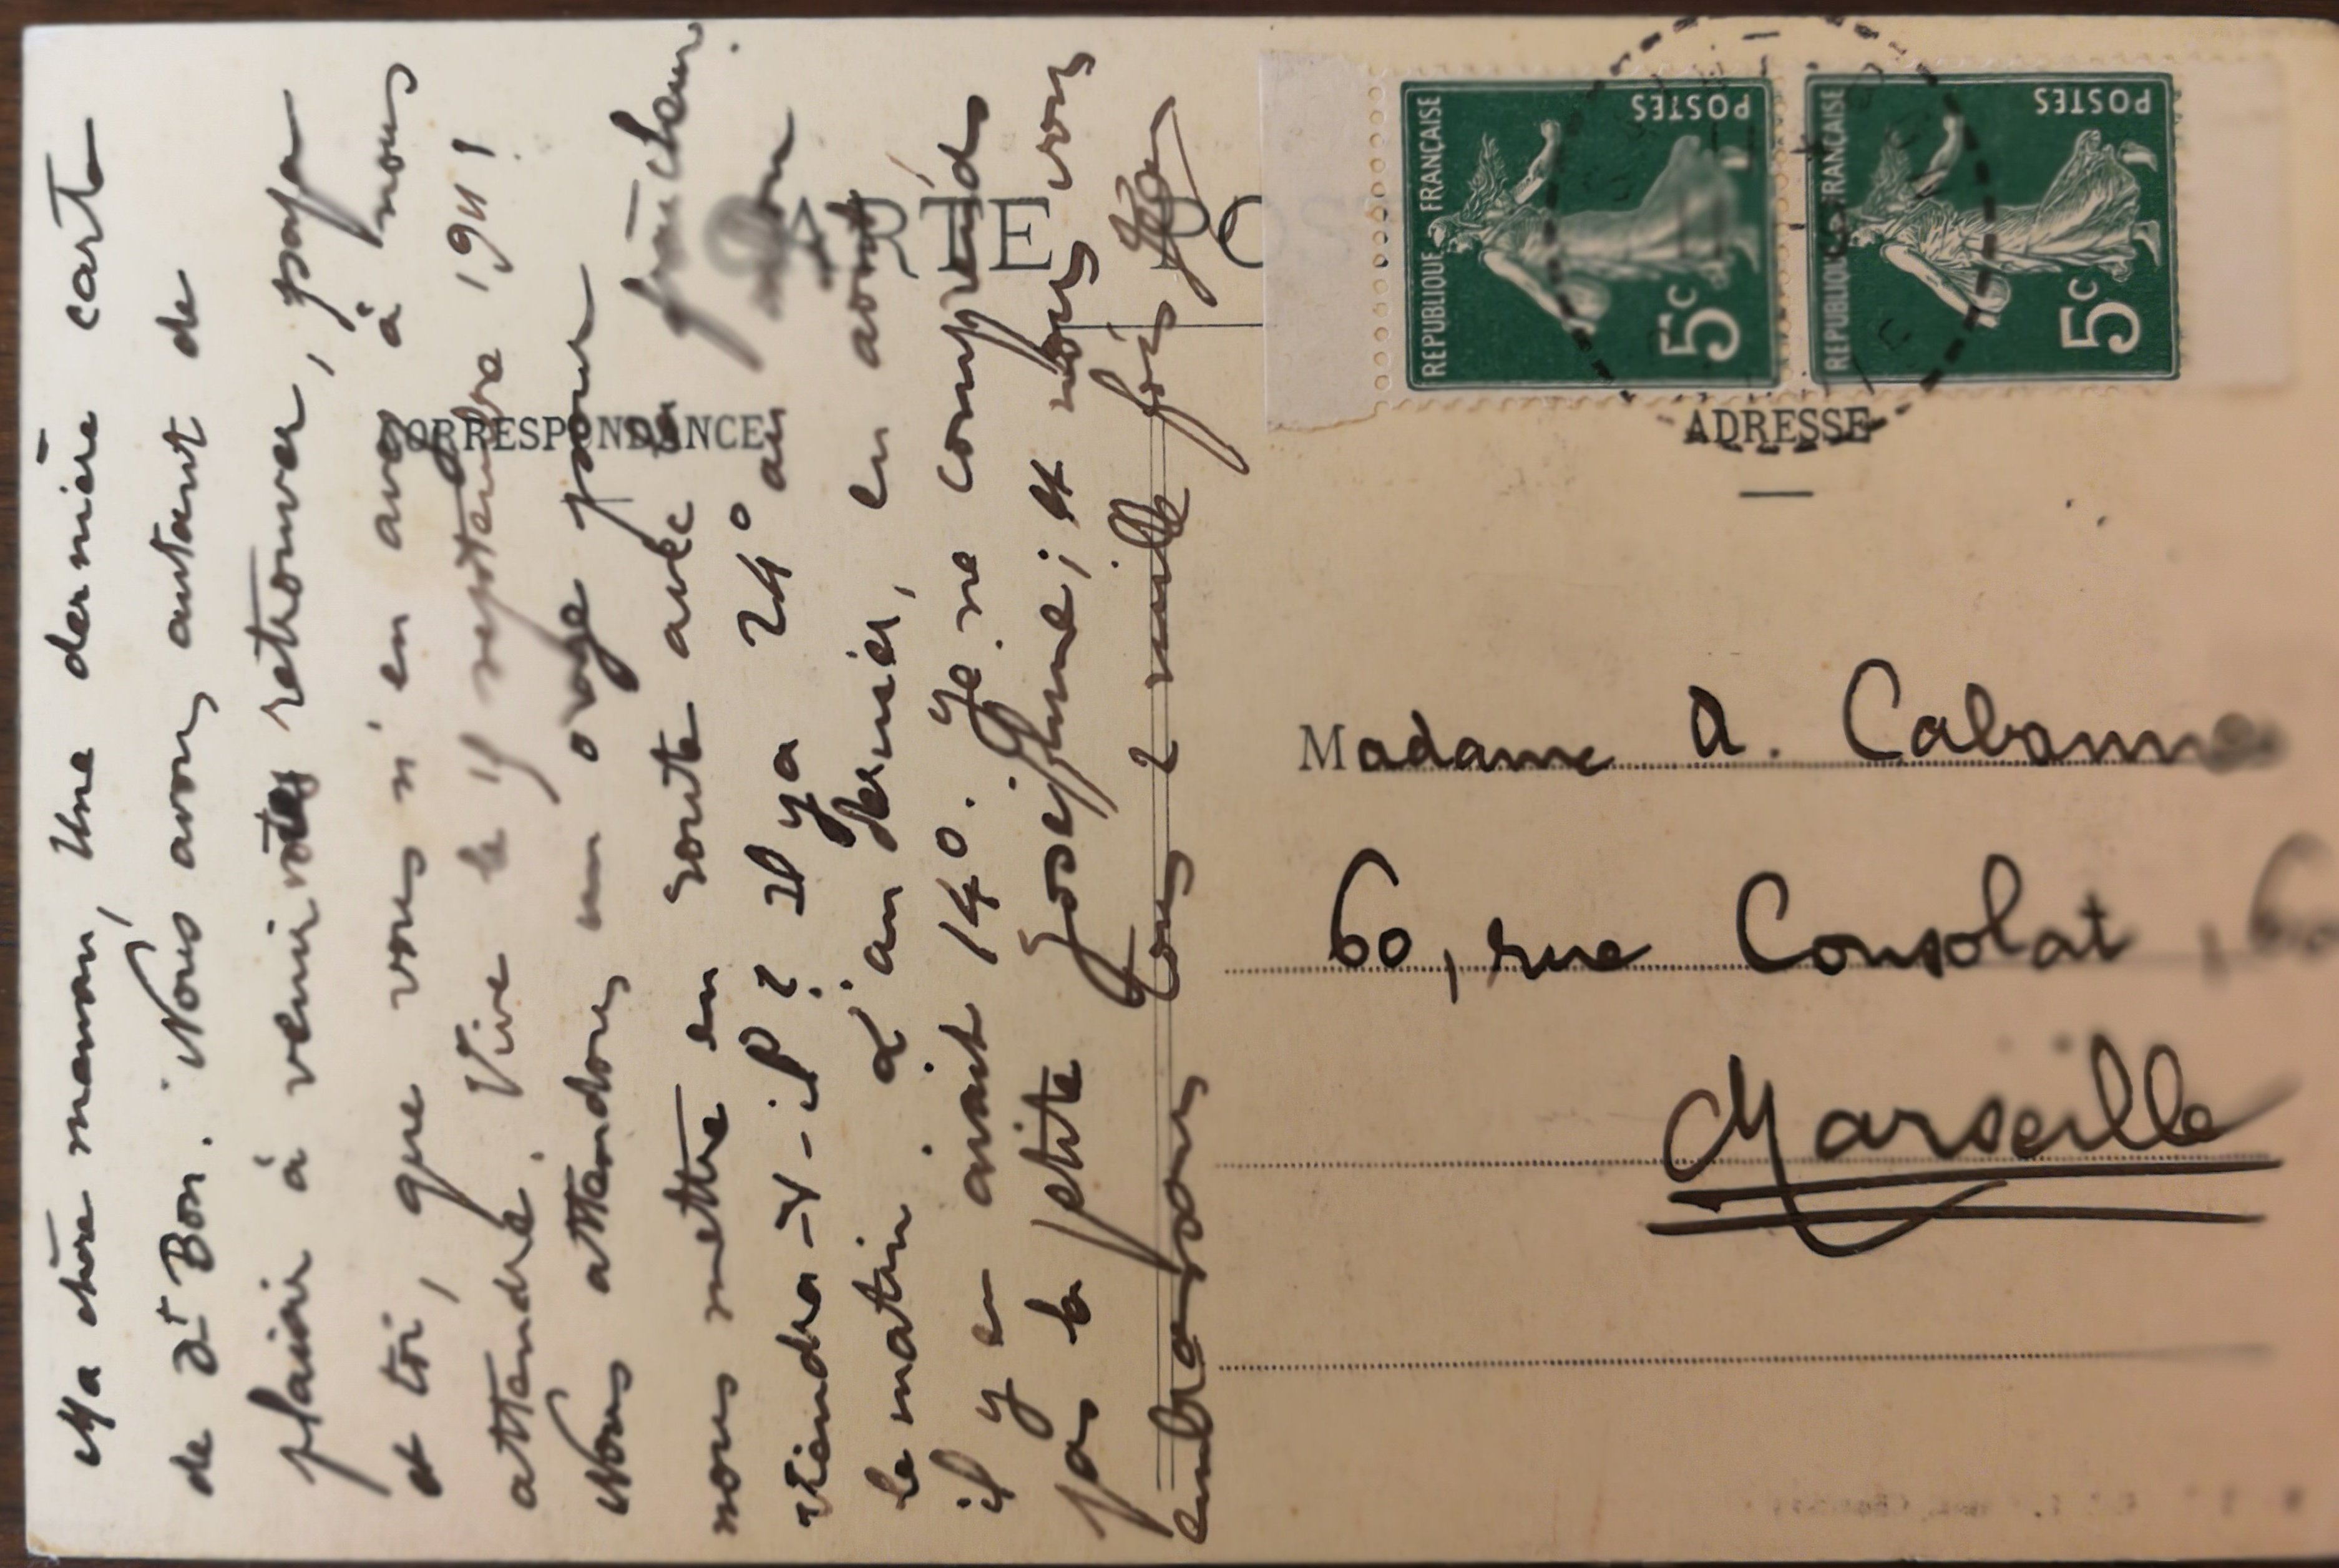 Ma chère maman, Une dernière carte
de St Bon. Nous avons autant de
plaisir à venir vous retrouver, papa
et toi, que vous n'en avez à nous
attendre. Vive le 15 septembre 1911
Nous attendons un orage pour
nous mettre en route avec la fraîcheur.
Viendra-t-il? Il y a 24° au
le matin. L'an dernier, en août,
il y en avait 14°. Je ne comprends
pas la petite Josephine; et nous vous
embrassons tous 2 mille fois
CARTE
CORRESPONDANCE
REPUBLIQUE FRANÇAISE
POSTES
5c
REPUBLIQUE FRANÇAISE
POSTES
5c
ADRESSE
Madame A. Cabannes
60, rue Consolat, 60
Marseille